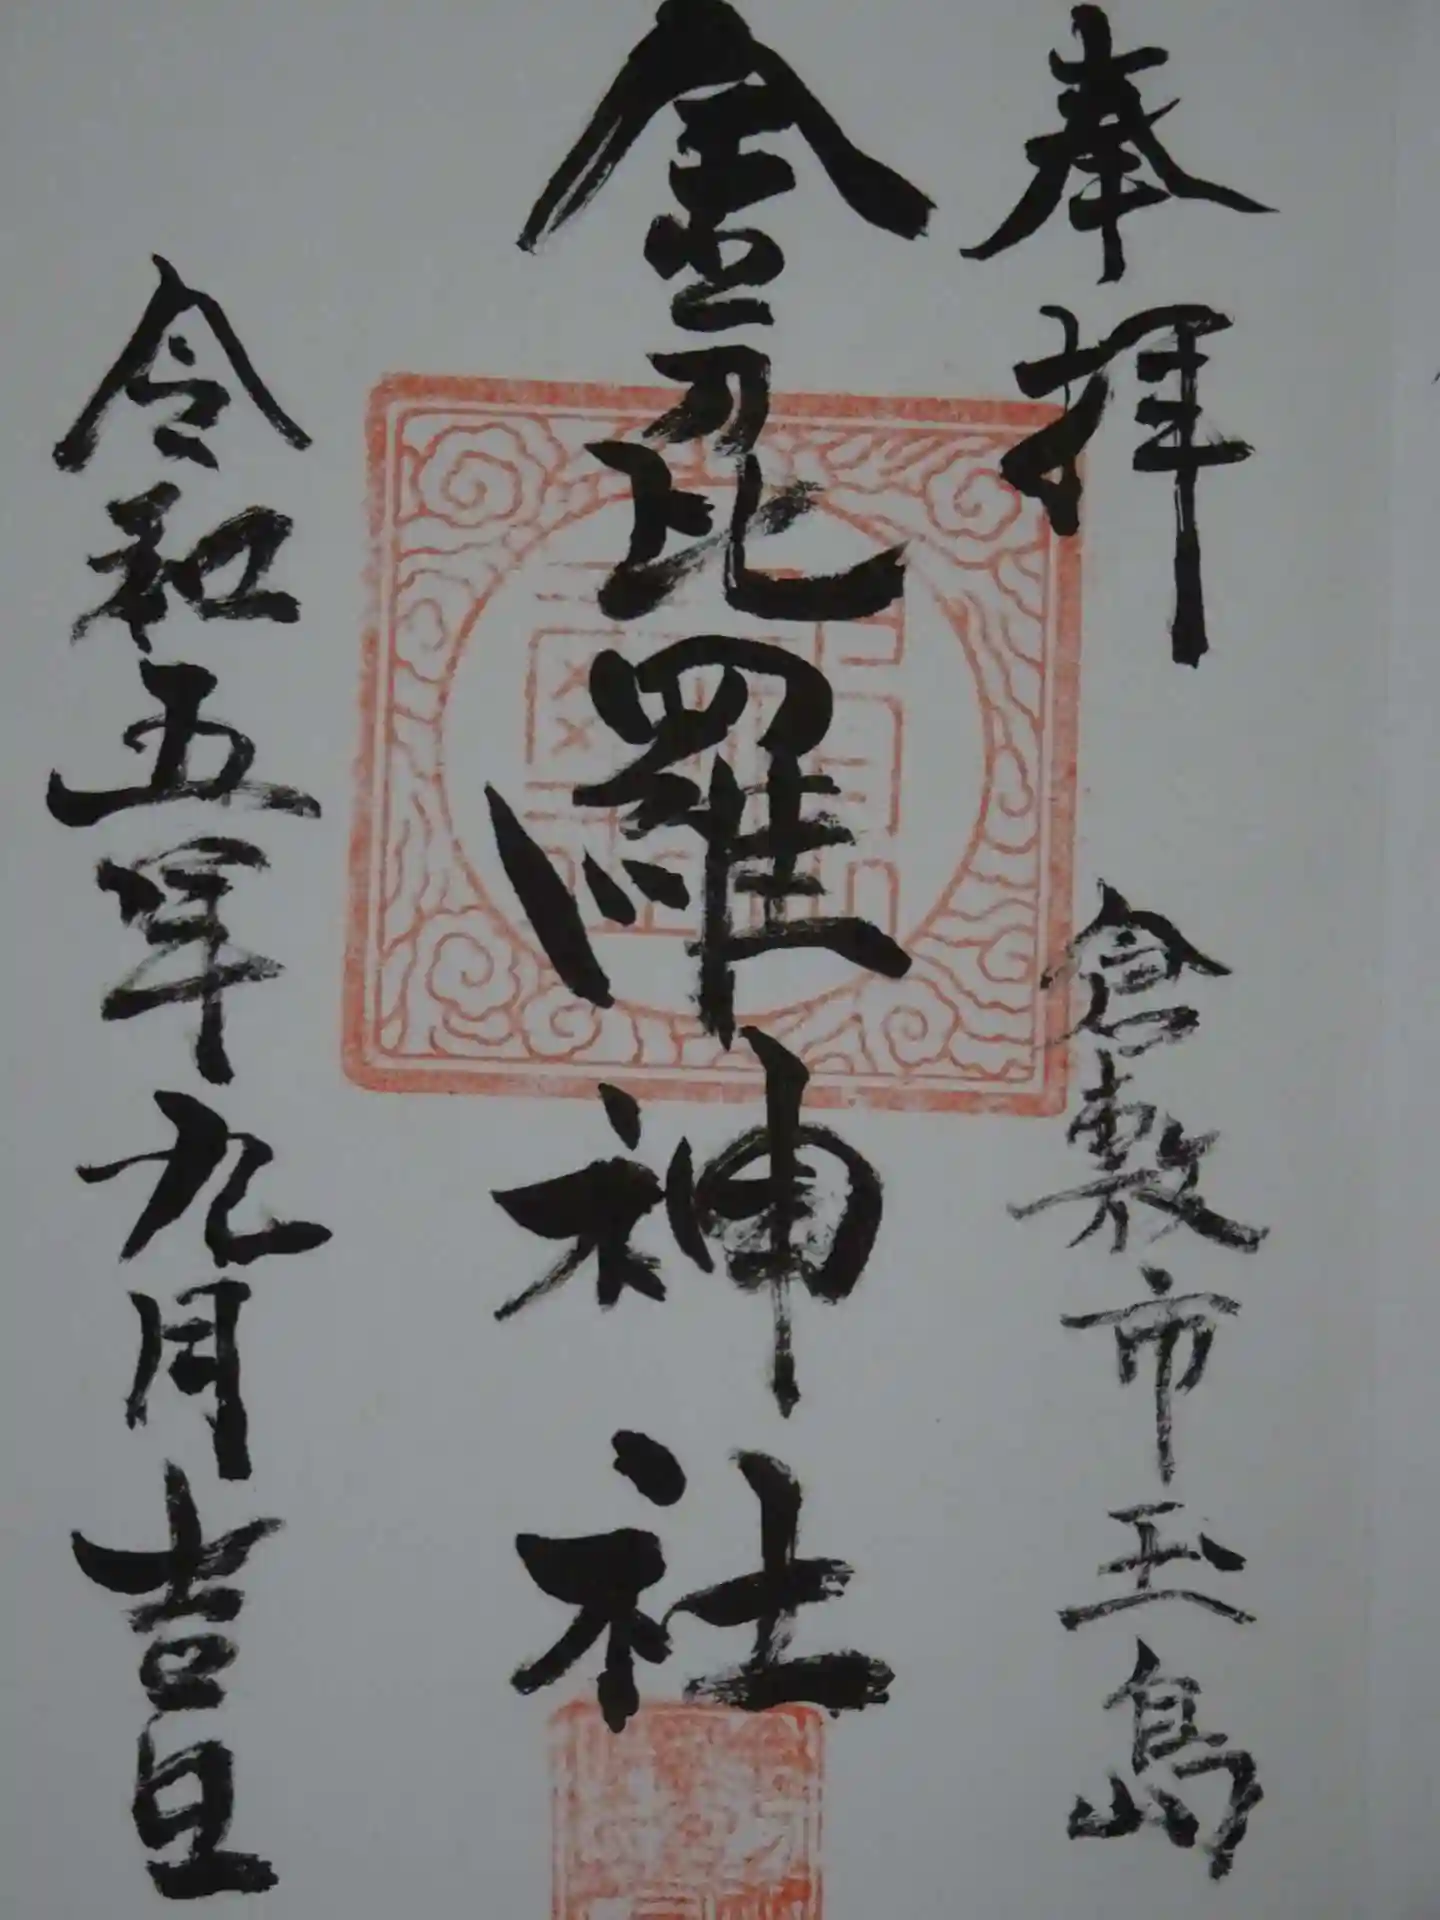 奉拝 倉敷市玉島
金毘羅神社
令和五年九月吉日